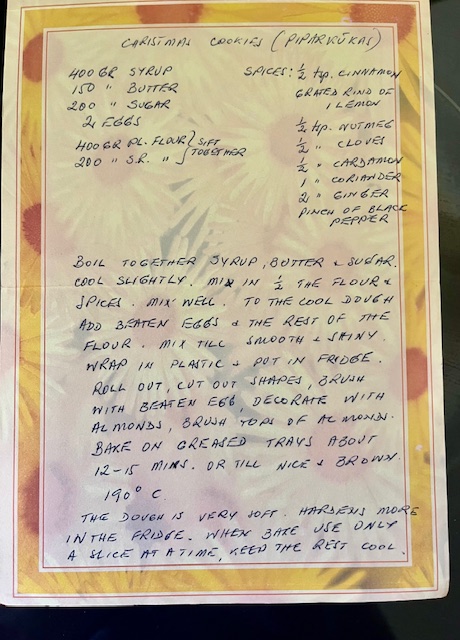 CHRISTMAS COOKIES (PIPARKŪKAS)
400 GR SYRUP
150 " BUTTER
200 " SUGAR
2 EGGS
400 GR PL. FLOUR } SIFT
200 " S.R. " } TOGETHER
SPICES: ½ tsp. CINNAMON
GRATED RIND OF
1 LEMON
½ tsp. NUTMEG
½ " CLOVES
½ " CARDAMON
1 " CORIANDER
2 " GINGER
PINCH OF BLACK
PEPPER
BOIL TOGETHER SYRUP, BUTTER & SUGAR.
COOL SLIGHTLY. MIX IN ½ THE FLOUR &
SPICES. MIX WELL. TO THE COOL DOUGH
ADD BEATEN EGGS & THE REST OF THE
FLOUR. MIX TILL SMOOTH & SHINY.
WRAP IN PLASTIC & PUT IN FRIDGE.
ROLL OUT, CUT OUT SHAPES, BRUSH
WITH BEATEN EGG, DECORATE WITH
ALMONDS, BRUSH TOPS OF ALMONDS.
BAKE ON GREASED TRAYS ABOUT
12-15 MINS. OR TILL NICE & BROWN.
190° C.
THE DOUGH IS VERY SOFT. HARDENS MORE
IN THE FRIDGE. WHEN BAKE USE ONLY
A SLICE AT A TIME, KEEP THE REST COOL.